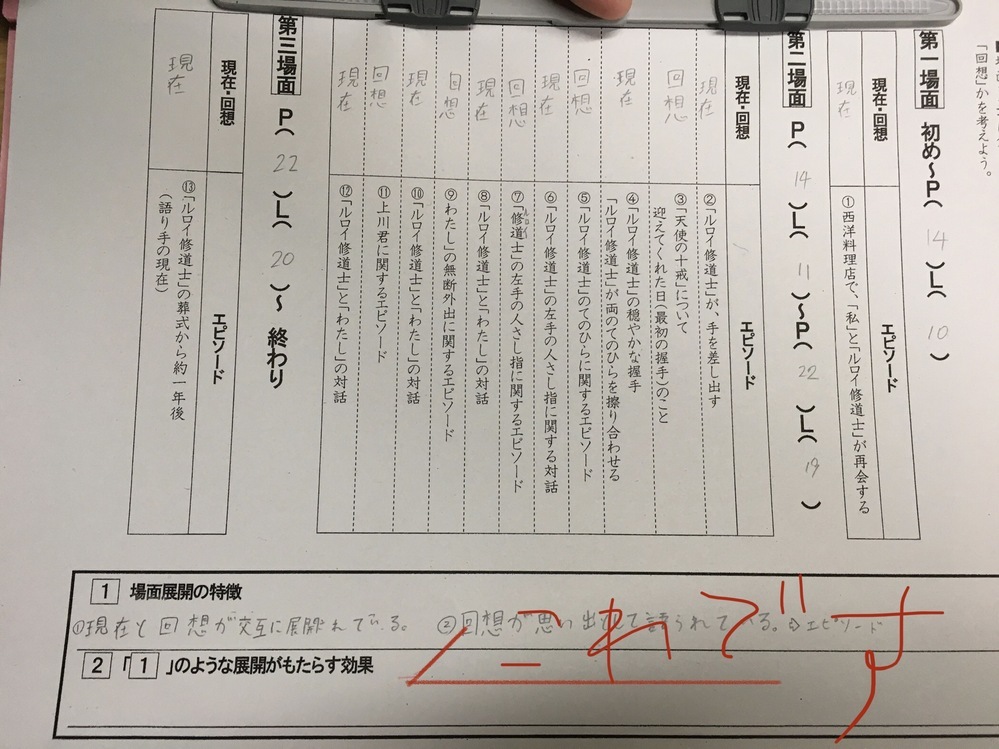 「回想」かを考えよう。
第一場面 初め〜P(14)L(10)
現在・回想
エピソード
現在
①西洋料理店で、「私」と「ルロイ修道士」が再会する
第二場面 P(14)L(11)〜P(22)L(19)
現在・回想
エピソード
現在
②「ルロイ修道士」が、手を差し出す
回想
③「天使の十戒」について
迎えてくれた日(最初の握手)のこと
現在
④「ルロイ修道士」の穏やかな握手
「ルロイ修道士」が両のてのひらを擦り合わせる
回想
⑤「ルロイ修道士」のてのひらに関するエピソード
現在
⑥「ルロイ修道士」の左手の人さし指に関する対話
回想
⑦「修道士」の左手の人さし指に関するエピソード
ルロイ
現在
⑧「ルロイ修道士」と「わたし」の対話
回想
⑨わたし」の無断外出に関するエピソード
現在
⑩「ルロイ修道士」と「わたし」の対話
回想
⑪上川君に関するエピソード
現在
⑫「ルロイ修道士」と「わたし」の対話
第三場面 P(22)L(20)〜 終わり
現在・回想
エピソード
現在
⑬「ルロイ修道士」の葬式から約一年後
(語り手の現在)
1 場面展開の特徴
①現在と回想が交互に展開れている。 ②回想が思い出として語られている。⇨エピソード
2 「1」のような展開がもたらす効果
これです